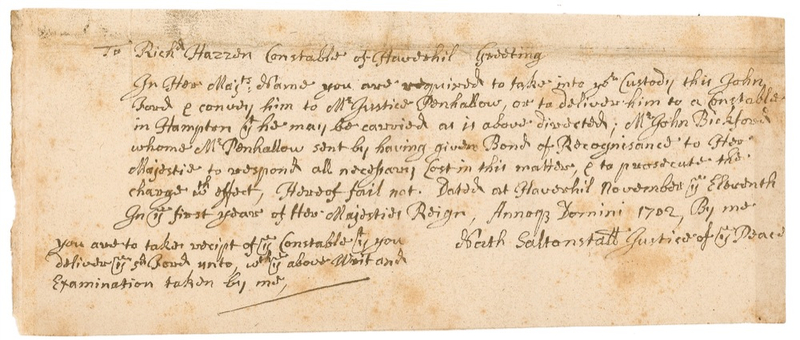 To Richd Hazzen Constable of Haverhil Greeting
In Her Majts: Name you are required to take into yr Custody this John
Bord & convey him to Mr Justice Penhallow, or to deliver him to a Constable
in Hampton yt he may be carried as is above directed; Mr John Bickford
whome Mr Penhallow sent by having given Bond of Recognisance to Her
Majestie to respond all necessary Cost in this matter & to prosecute the
charge wth effect, Hereof fail not. Dated at Haverhil November ye Eleventh
In ye first year of Her Majesties Reign, Annoq Domini 1702, By me
Nath Saltonstall Justice of ye Peace
you are to take recipt of ye Constable yt you
deliver ye sd Bord unto, wth ye above Writ and
Examination taken by me,